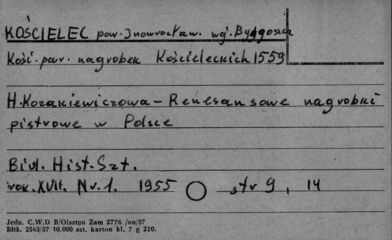 KOŚCIELEC pow. Jnowrocław. wg. Bydgoszcz
Kość. par. nagrobek Kościeleckich 1559
H. Kozakiewiczowa - Renesansowe nagrobki
piętrowe w Polsce
Biul. Hist. Szt.
rok. XVII. Nr. 1. 1955 str 9, 14
Jedn. C.W.D B/Olsztyn Zam 2776 /sn/57
Bltk. 2563/57 10.000 szt. karton kl. 7 g 220.